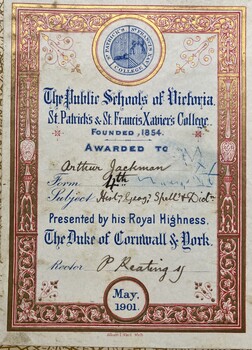 ST PATRICK'S & ST FRANCIS
COLLEGE
The Public Schools of Victoria.
St. Patricks & St. Francis Xavier's College.
FOUNDED, 1854.
AWARDED TO
Arthur Jackman
Form 4th
Subject Hist, Geog, Spell & Dictn
Presented by his Royal Highness.
The Duke of Cornwall & York.
Rector P Keating SJ
May,
1901.